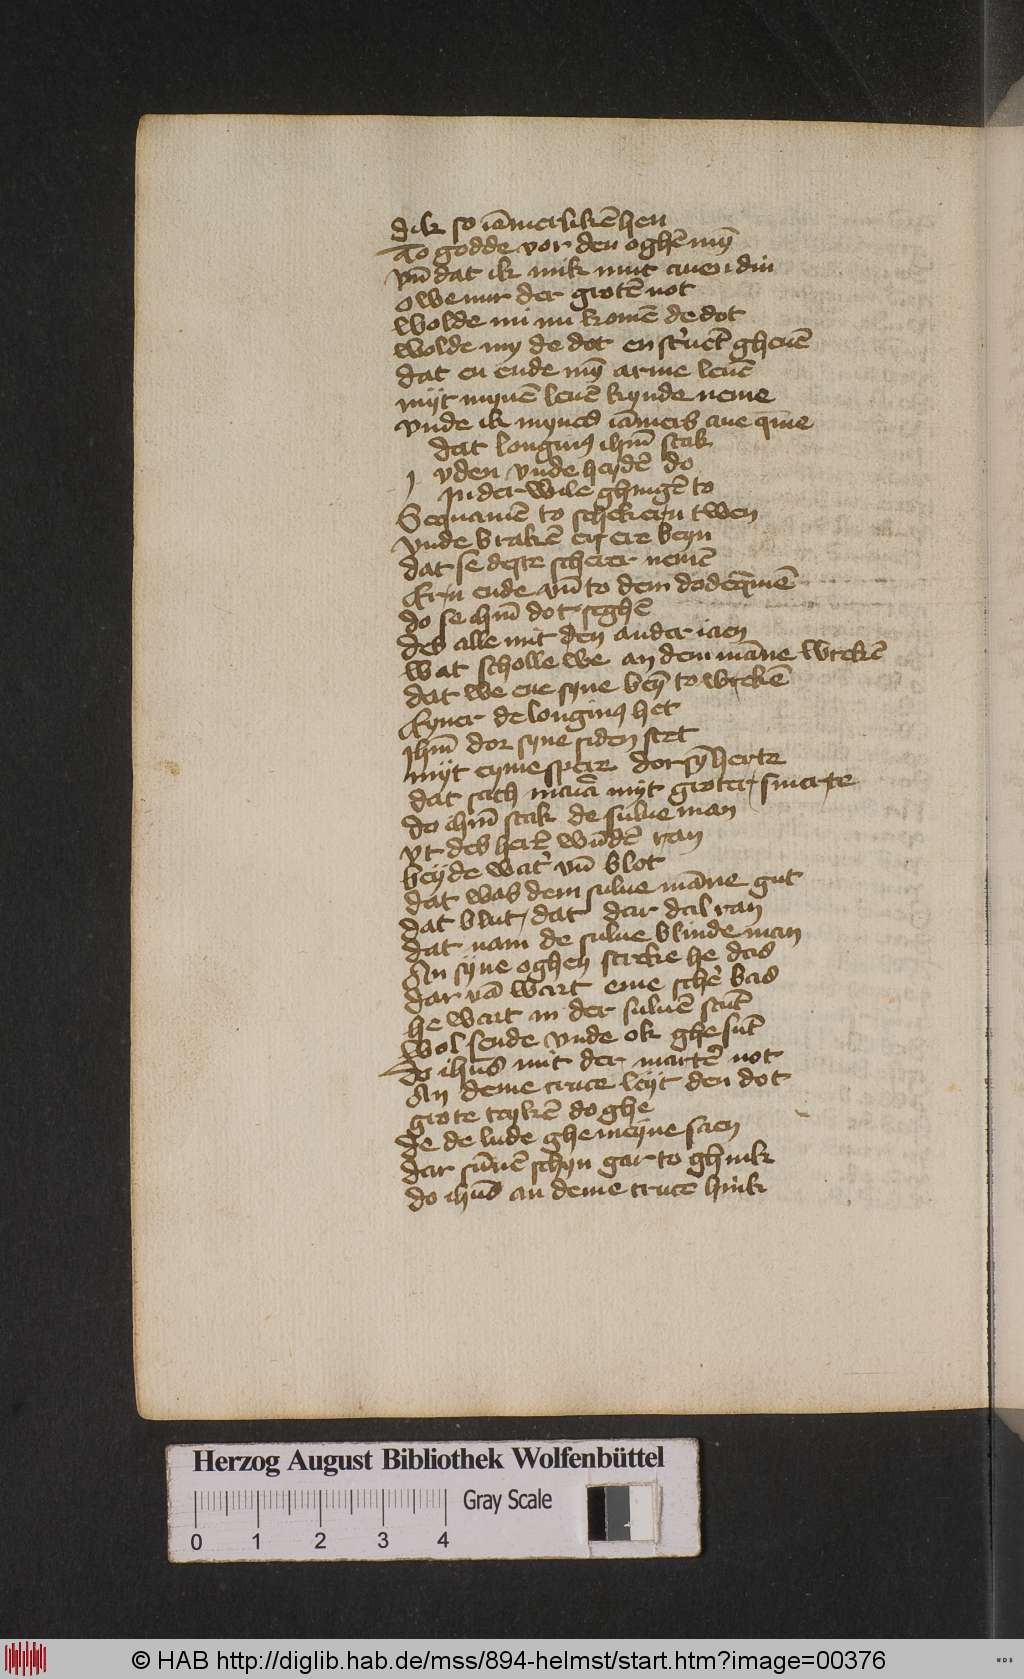 dik so iāmerlikē hen
To godde vor den oghē mȳ
vn̄ dat ik mik mut auen din
O we mir der grotē not
wolde mi nu komē de dot
wolde my de dot en st'uent gheuē
dat en ende mȳ arme leuē
mijt mynē leuē kynde neme
vnde ik mynes iāmers aue q̄me
dat longinꝯ ihm̄ stak
J vden vnde heydē do
In der wile ghingē to
Se quamē to schekern twen
vnde brakē en ere beyn
dat se deste scherer nemē
Ern ende vn̄ to dem dode q̄mē
do se ihm̄ dot seghē
des alle mit den ander iaen
wat scholle we an dem māne wrekē
dat we ene syne beȳ to wrekē
Eyner de longinꝯ het
ihm̄ dor syne siden stet
mijt eyme spere dor sȳ herte
dat sach maria mijt groter smerte
do ihm̄ stak de sulue man
vt des hert' wūdē ran
beyde wat' vn̄ blot
dat was dem sulue māne gut
dat blut dat dar dal ran
dat nam de sulue blinde man
An syne oghen streke he das
dar vā wart eme sche' bas
he wart in der suluē stūt
wol sende vnde ok ghesūt
Do ihūs mit der marter not
An deme cruce leyt den dot
grote teykē do ghe
De de lude ghemeyne saen
dar sūnē schyn gar to ghink
do ihūs an deme cruce hink
Herzog August Bibliothek Wolfenbüttel
Gray Scale
0 1 2 3 4
© HAB http://diglib.hab.de/mss/894-helmst/start.htm?image=00376